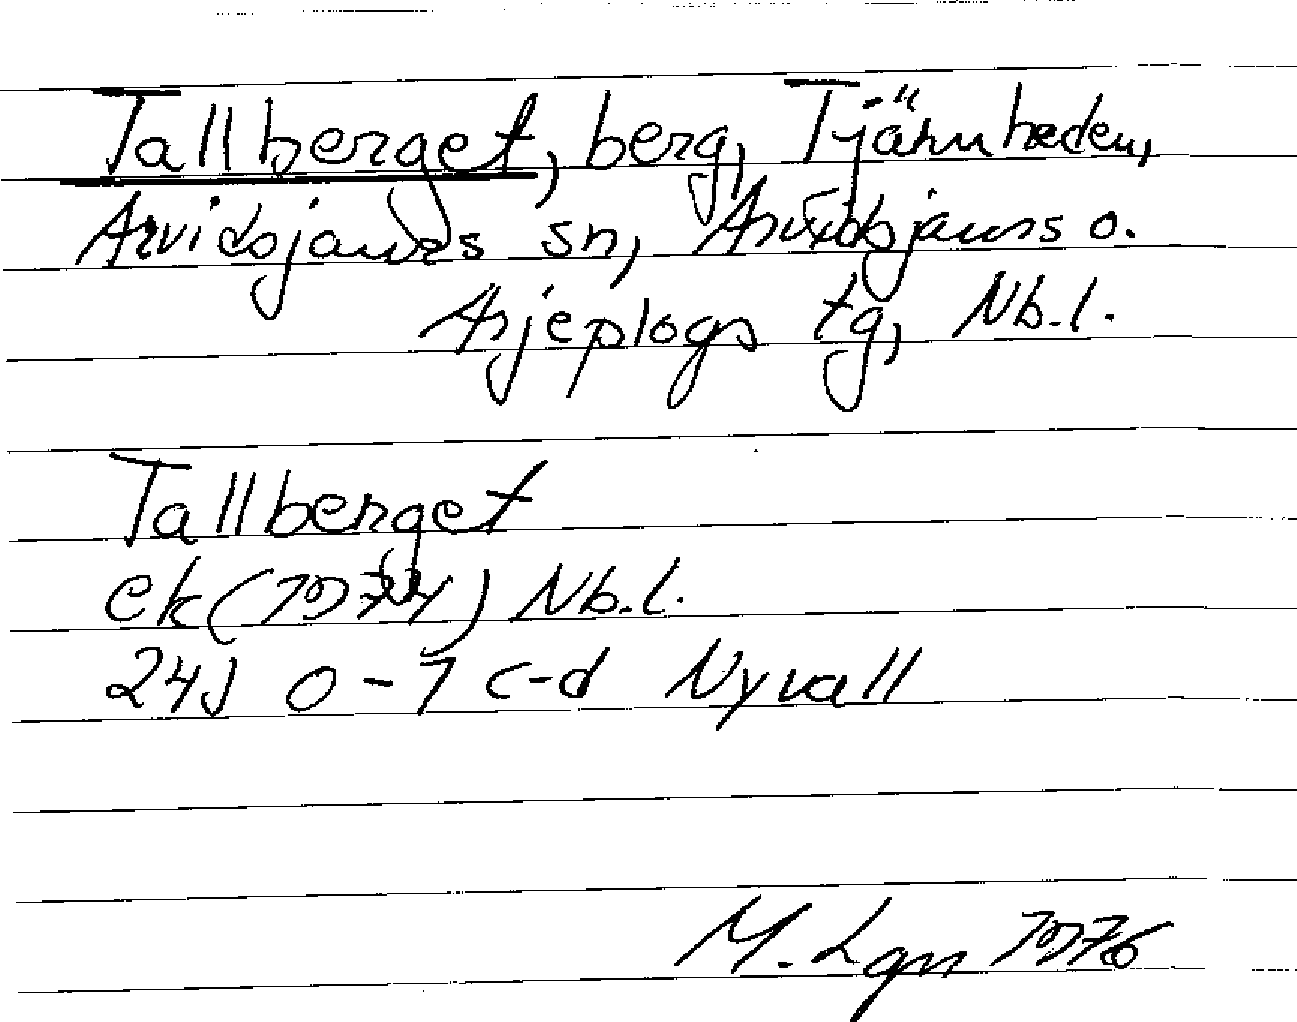 Tallberget, berg, Tjärnheden,
Arvidsjaurs sn, Arvidsjaurs o.
Arjeplogs tg, Nb.l.
Tallberget
ek (1974) Nb.l.
24J 0-1 c-d Nyvall
M. Lgn 1976